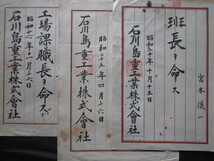 宮本儀一
班長ヲ命ス
十月十五日
石川島重工業株式會社
昭和
年四月十六日
石川島重工業株式會社
工場課職長ヲ命ス
昭和
六年四月十六日
石川島重工業株式會社